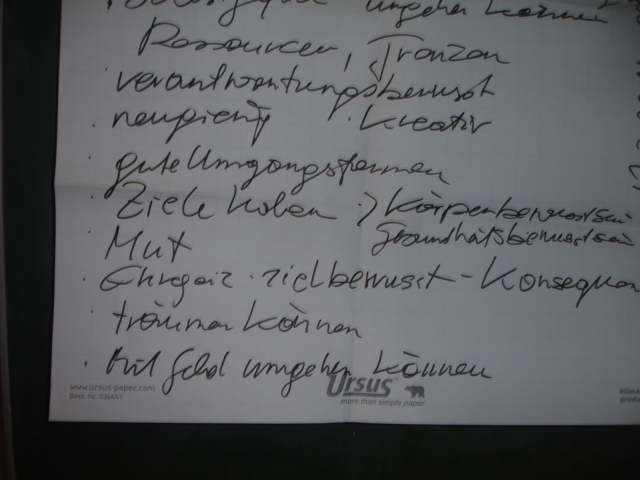 umgehen können
Ressourcen, Grenzen
verantwortungsbewusst
· neugierig · kreativ
· gute Umgangsformen
· Ziele haben > Körperbewusstsein
· Mut Gesundheitsbewusstsein
· Ehrgeiz · zielbewusst - Konsequen
· träumen können
· Mit Geld umgehen können
www.ursus-paper.com
Best. Nr. 036441
Ursus®
more than simple paper
klima
produ